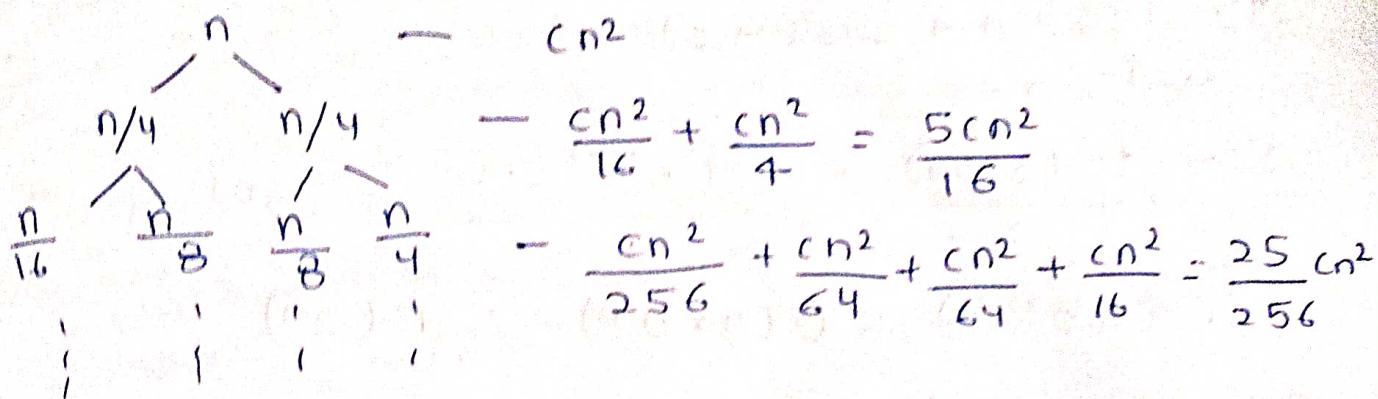 n — cn²
n/4 n/4 — cn²/16 + cn²/4 = 5cn²/16
n/16 n/8 n/8 n/4 - cn²/256 + cn²/64 + cn²/64 + cn²/16 = 25/256 cn²